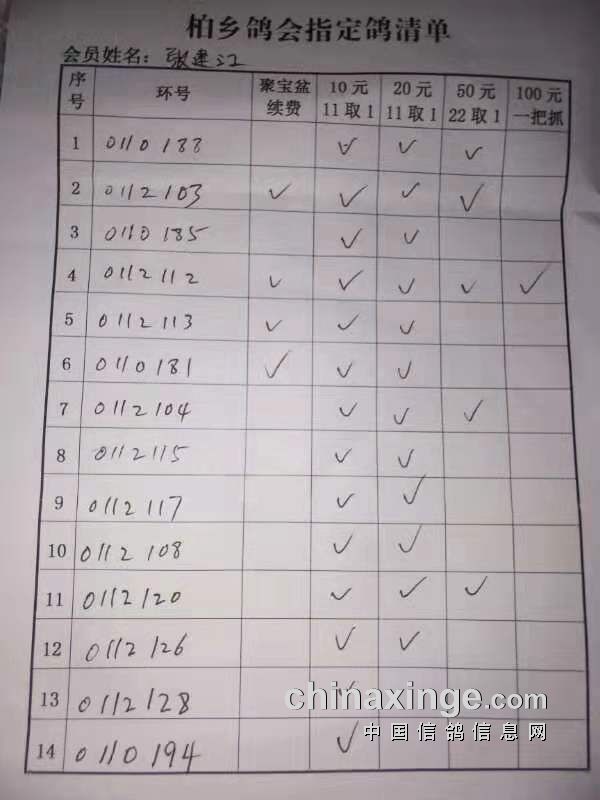 柏乡鸽会指定鸽清单
会员姓名：张建江
序号 环号 聚宝盆续费 10元11取1 20元11取1 50元22取1 100元一把抓
1 0110188 ✓ ✓ ✓
2 0112103 ✓ ✓ ✓ ✓
3 0110185 ✓ ✓
4 0112112 ✓ ✓ ✓ ✓ ✓
5 0112113 ✓ ✓ ✓
6 0110181 ✓ ✓ ✓
7 0112104 ✓ ✓ ✓
8 0112115 ✓ ✓
9 0112117 ✓ ✓
10 0112108 ✓ ✓
11 0112120 ✓ ✓ ✓
12 0112126 ✓ ✓
13 0112128 ✓
14 0110194 ✓
chinaxinge.com
中国信鸽信息网